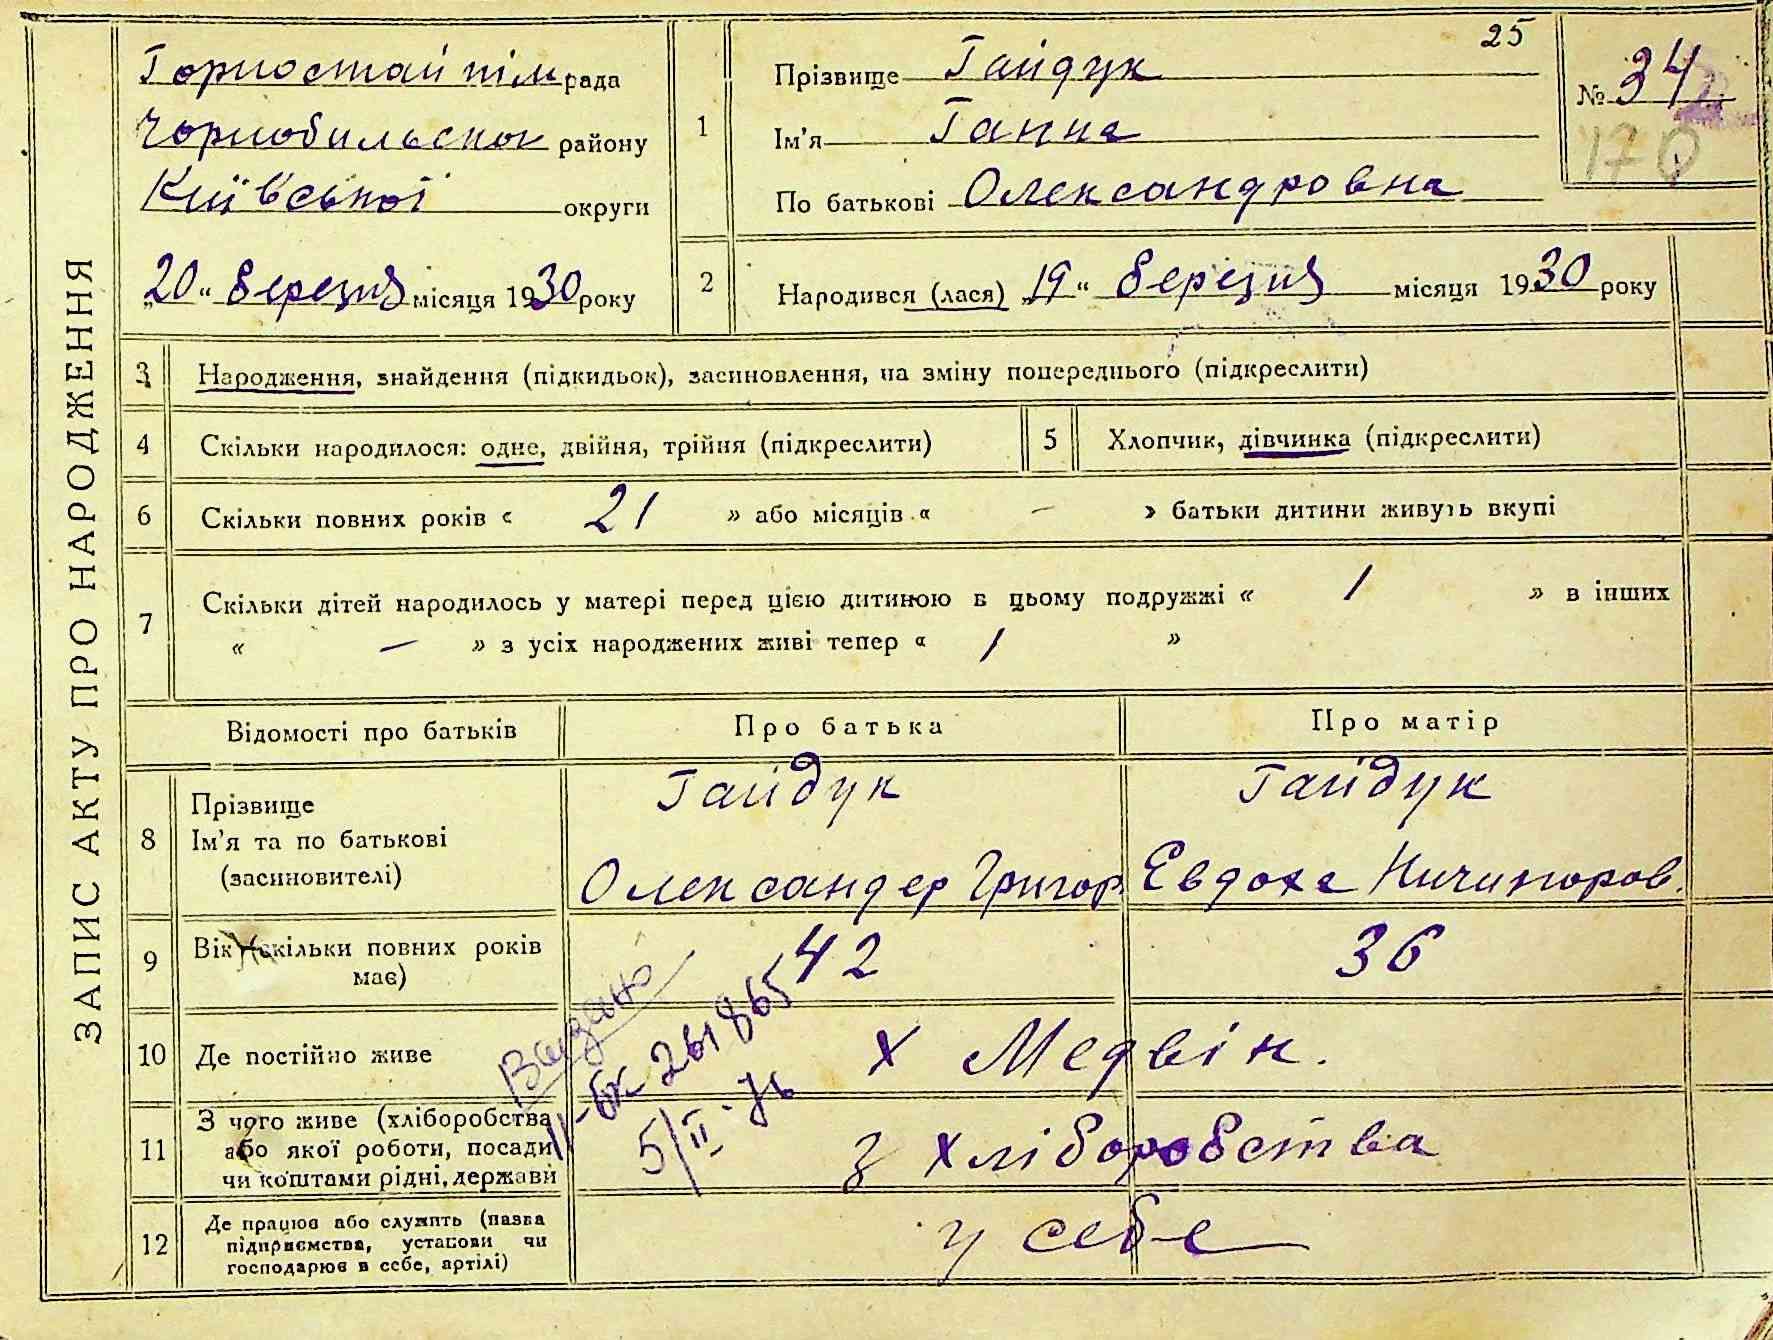 ЗАПИС АКТУ ПРО НАРОДЖЕННЯ
Горностайпіль рада
Чорнобильськ району
Київської округи
„20“ березня місяця 1930 року
25
1
Прізвище Гайдук
Ім'я Ганна
По батькові Олександровна
№ 34
170
2
Народився (лася) „19“ березня місяця 1930 року
3 Народження, знайдення (підкидьок), засиновлення, на зміну попереднього (підкреслити)
4 Скільки народилося: одне, двійня, трійня (підкреслити)
5 Хлопчик, дівчинка (підкреслити)
6 Скільки повних років « 21 » або місяців « – » батьки дитини живуть вкупі
7 Скільки дітей народилось у матері перед цією дитиною в цьому подружжі « 1 » в інших
« – » з усіх народжених живі тепер « 1 »
Відомості про батьків Про батька Про матір
8
Прізвище
Ім'я та по батькові
(засиновителі)
Гайдук
Олександер Григор
Гайдук
Евдоха Ничипоров.
9
Вік (скільки повних років
має)
42
36
10 Де постійно живе
х Медвін.
Видано
II-БК 261865
5/II-76
11
З чого живе (хліборобства
або якої роботи, посади
чи коштами рідні, держави
з хліборобства
12
Де працює або служить (назва
підприємства, установи чи
господарює в себе, артілі)
у себе